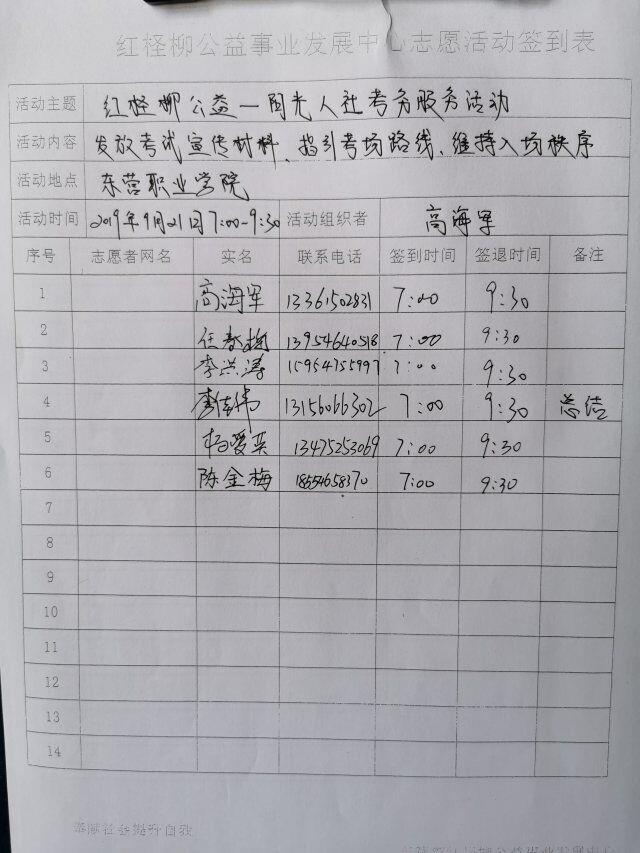 红柽柳公益事业发展中心志愿活动签到表
活动主题 红柽柳公益—阳光人社考务服务活动
活动内容 发放考试宣传材料、指引考场路线、维持入场秩序
活动地点 东营职业学院
活动时间 2019年9月21日7:00-9:30 活动组织者 高海军
序号 志愿者网名 实名 联系电话 签到时间 签退时间 备注
1 高海军 13361502831 7:00 9:30
2 任春梅 13954640518 7:00 9:30
3 李洪涛 15954755997 7:00 9:30
4 李伟 13156066302 7:00 9:30 总结
5 杨爱英 13475253069 7:00 9:30
6 陈金梅 18654658370 7:00 9:30
7
8
9
10
11
12
13
14
奉献社会提升自我